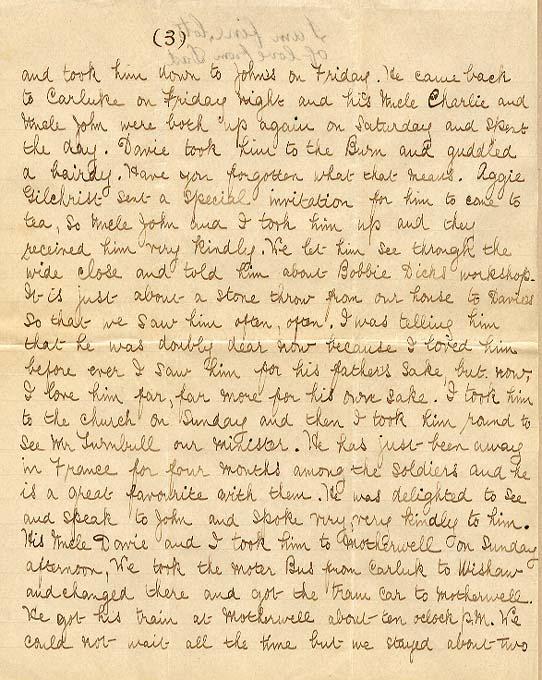 (3)
I am fine, lots
of love from Dad
and took him down to Johns's on Friday. He came back
to Carluke on Friday night and his Uncle Charlie and
Uncle John were both up again on Saturday and spent
the day. Davie took him to the Burn and guddled
a bairdy. Have you forgotten what that means. Aggie
Gilchrist sent a special invitation for him to come to
tea, so Uncle John and I took him up and they
received him very kindly. We let him see through the
wide close and told him about Bobbie Dicks workshop.
It is just about a stone throw from our house to Davies
so that we saw him often, often. I was telling him
that he was doubly dear now because I loved him
before ever I saw him for his father's sake, but now,
I love him far, far more for his own sake. I took him
to the church on Sunday and then I took him round to
see Mr Turnbull our minister. He has just been away
in France for four months among the soldiers and he
is a great favourite with them. He was delighted to see
and speak to John and spoke very, very kindly to him.
His Uncle Davie and I took him to Motherwell on Sunday
afternoon, We took the moter Bus from Carluk to Wishaw
and changed there and got the tram car to Motherwell.
He got his train at Motherwell about ten oclock p.m. We
could not wait all the time but we stayed about two